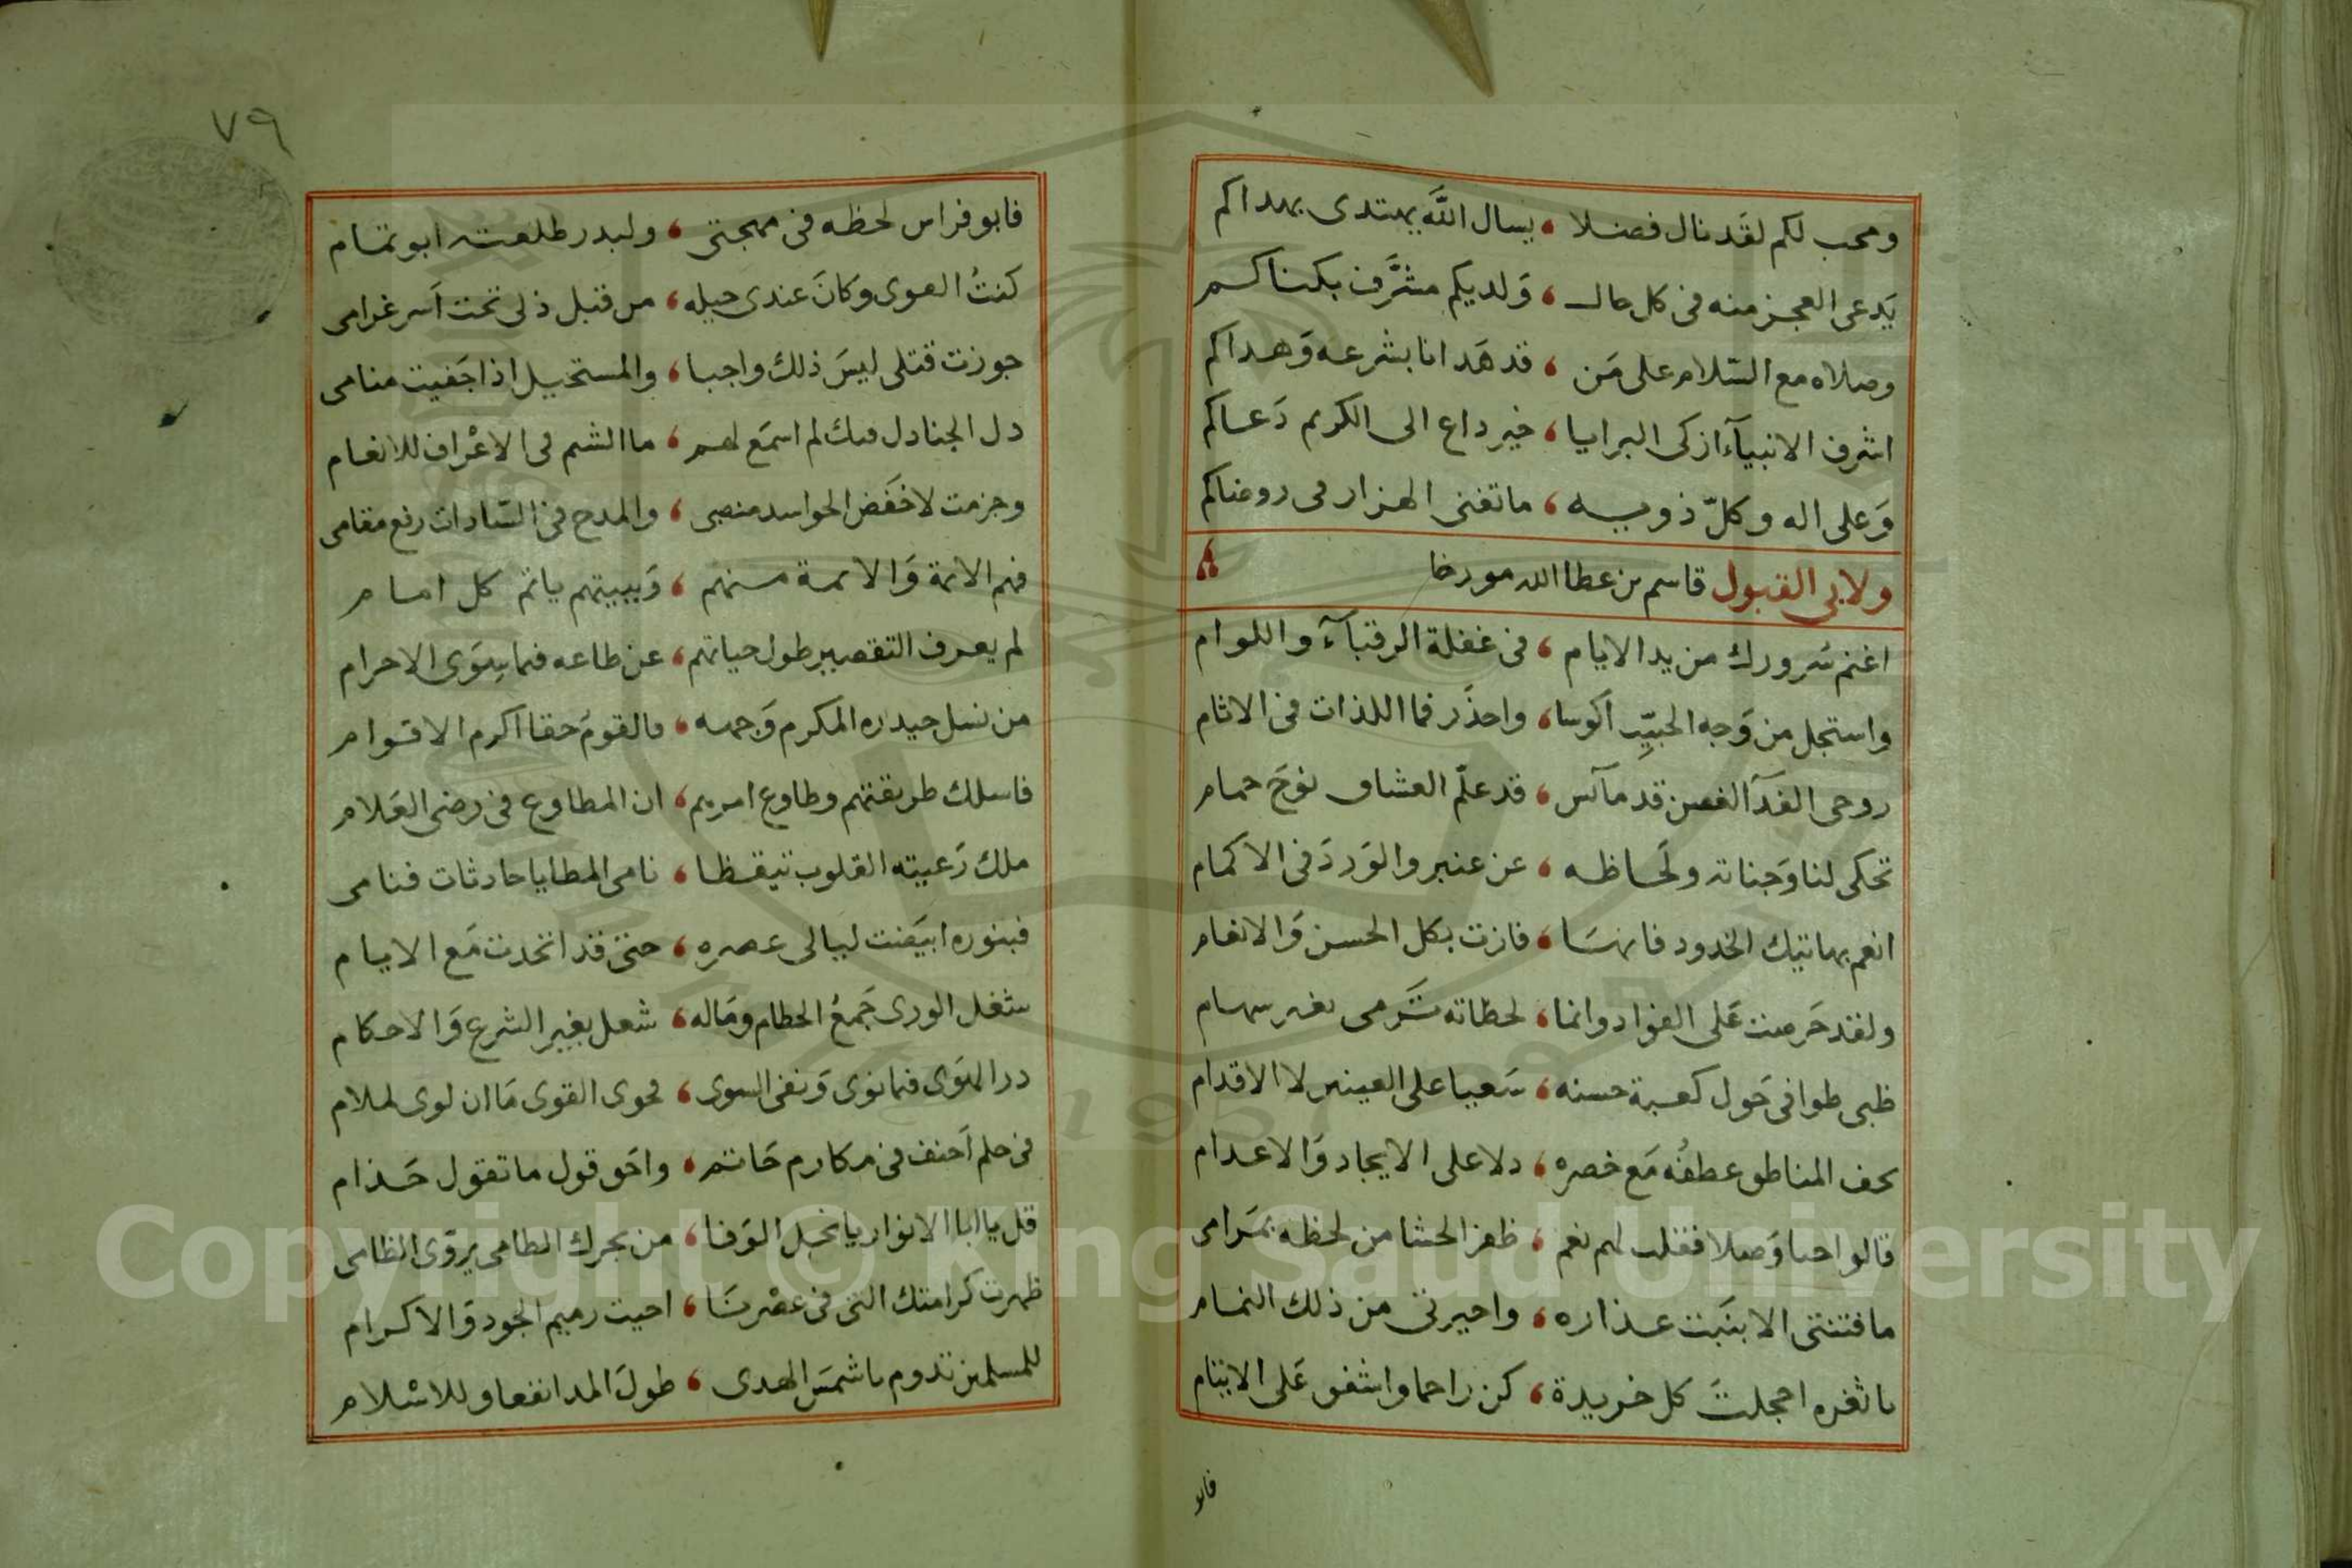 ومحب لكم لقد نال فضلا ، يسال الله يهتدى بهداكم
يَدعى العجز منه فى كل حال ، وَلديكم مشرَّف بكناكم
وصلاه مع السّلام على مَن ، قد هَدانا بشرعه وَهداكم
اشرف الانبيآء ازكى البرايا ، خير داع الى الكريم دَعاكم
وَعلى اله وكلّ ذويه ، ما تغنى الهزار فى روضاكم
ولابى القبول قاسم بن عطا الله مورخا
اغنم سُرورك من يد الايام ، فى غفلة الرقبآء واللوام
واستجل من وَجه الحبيِّب اكوسا ، واحذَر فما اللذات فى الاثام
روحى الفدَآ لغصن قد مآئس ، قد علّم العشاق نوحَ حمام
تحكى لنا وَجناته ولحَاظه ، عن عنبر والوَردَ فى الاكمام
انعم بهاتيك الخدود فانهسَا ، فازت بكل الحسن وَالانعام
ولقد حَرصت عَلى الفواد وانما ، لحظاته تَرمى بغير سهام
ظبى طوافى حَول كعبة حسنه ، سَعيا على العينين لا الاقدام
بحف المناطق عطفُه مَع خصره ، دلا على الايجاد وَالاعدام
قالوا حبا وَصلا فقلت لهم نعم ، ظفر الحشا من لحظه بمرَامى
ما فتنتى الا بنَبت عذاره ، واحيرتى من ذلك النمام
يا ثغره اخجلتَ كل خريدة ، كن راحما واشفق عَلى الايتام
فابو
٧٩
فابو فراس لحظه فى مهجتى ، ولبدر طلعته ابو تمام
كنتُ الهوى وكانَ عندى حيلة ، من قبل ذلى تحت اَسر غرامى
جوزت قتلى ليسَ ذلك واجبا ، والمستحيل اذا جَفيت منامى
دل الجنادل فيك لم اسمَع لهم ، ما الشم فى الاعْراف للانعام
وجزمت لا خَفَض الحواسد منصبى ، والمدح فى السّادات رفع مقامى
فهم الائمة وَالائمة منهم ، وَببيتهم ياتم كل امام
لم يعرف التقصير طول حياتهم ، عن طاعه فما سِوَى الاحرام
من نسل حيدره المكرم وَجهه ، فالقومُ حقا اكرم الاقوام
فاسلك طريقتهم وطاوع امرهم ، ان المطاوع فى رضى العَلام
ملك رَعيته القلوب تيقظا ، نامى المطايا حادثات فنامى
فبنوره ابيَضت ليالى عصره ، حتى قد اتحدت مَع الايام
شغل الورى جَمعُ الحطام ومَاله ، شغل بغير الشرع وَالاحكام
در الهَوَى فما نوى وَنفى السوى ، فحوى القوى مَا ان لوى لملام
فى حلم اَحنف فى مكارم حَاتم ، واحَق قول ما تقول حَذام
قل يا ابا الانوار يا نجل الوَفا ، من بحرك الطامى يروّى الظامى
ظهرت كرامتك التى فى عصْرنَا ، احيت رميم الجود وَالاكرام
للمسلمين تدوم يا شمسَ الهدى ، طولَ المدا نفعا وللاسْلام